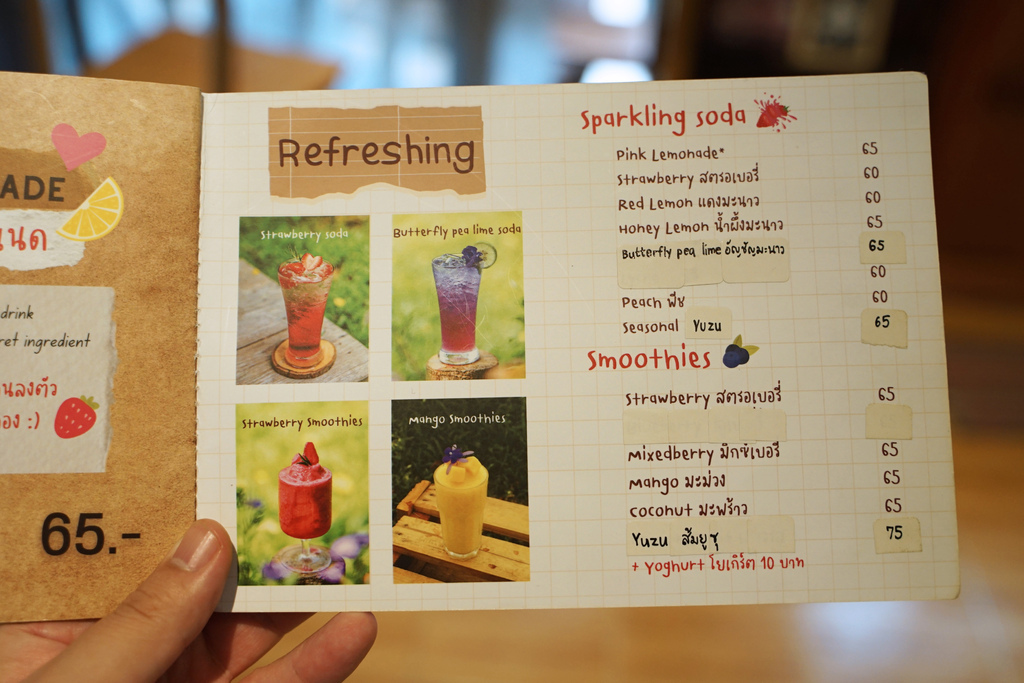 ADE
นนด
drink
ret ingredient
นลงตัว
อง :)
65.-
Refreshing
Strawberry soda
Butterfly pea lime soda
Strawberry Smoothies
Mango Smoothies
Sparkling soda
Pink Lemonade* 65
Strawberry สตรอเบอรี่ 60
Red Lemon แดงมะนาว 60
Honey Lemon น้ำผึ้งมะนาว 65
Butterfly pea lime อัญชัญมะนาว 65
60
Peach พีช 60
Seasonal Yuzu 65
Smoothies
Strawberry สตรอเบอรี่ 65
Mixedberry มิกซ์เบอรี่ 65
Mango มะม่วง 65
coconut มะพร้าว 65
Yuzu ส้มยูซุ 75
+ Yoghurt โยเกิร์ต 10 บาท